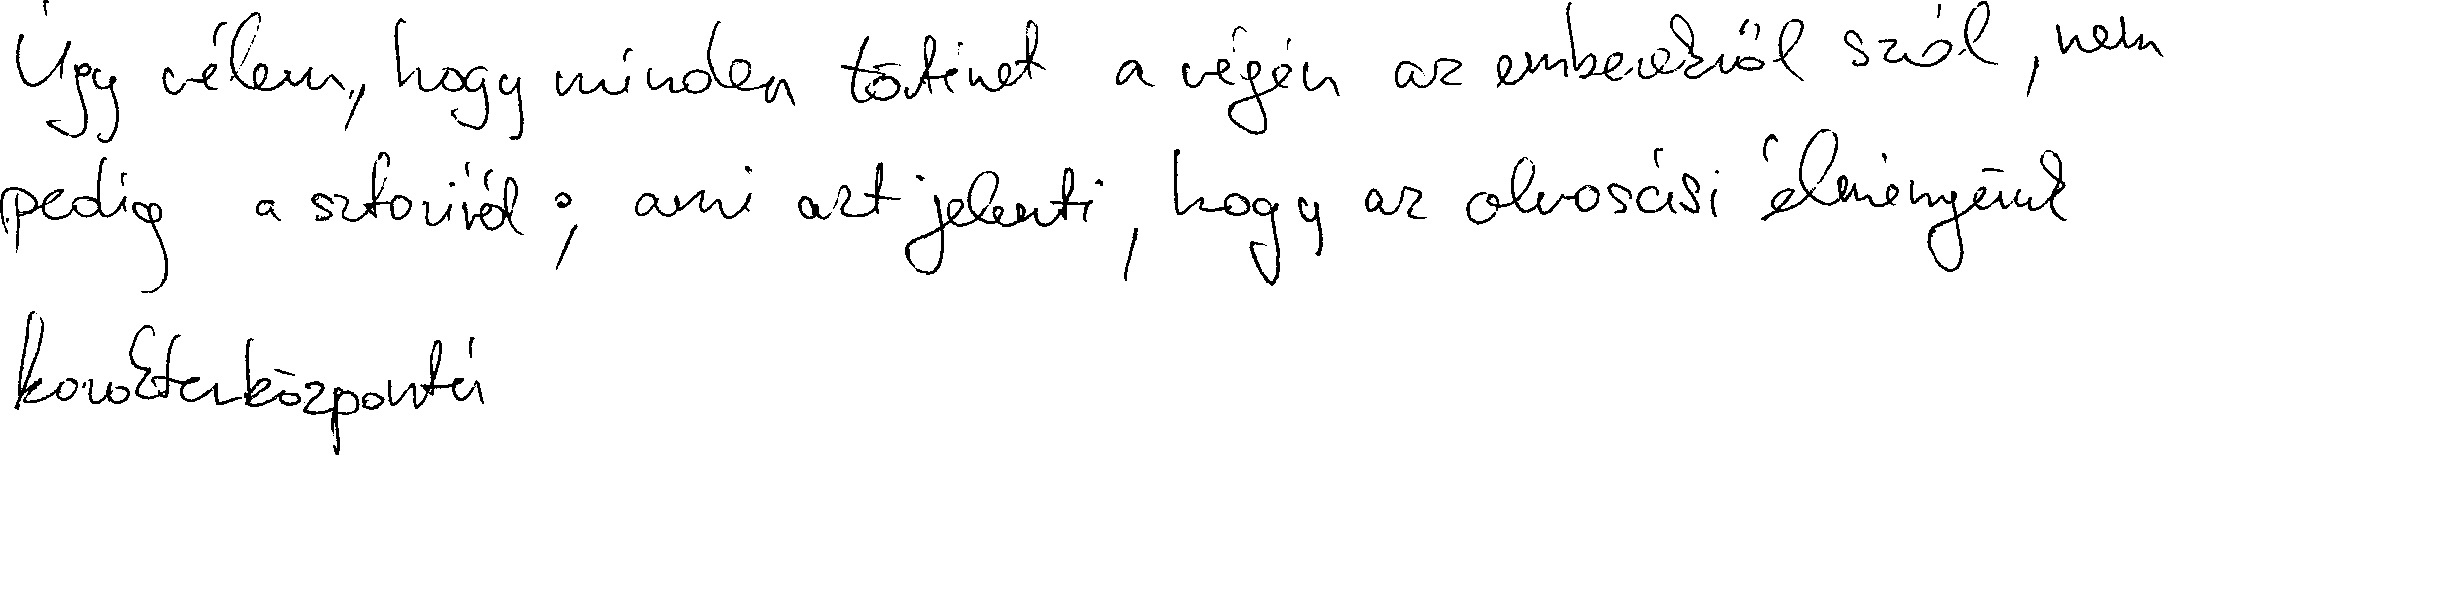 Úgy vélem, hogy minden történet a végén az emberekről szól, nem
pedig a sztoriról; ami azt jelenti, hogy az olvasási élményünk
karakterközpontú